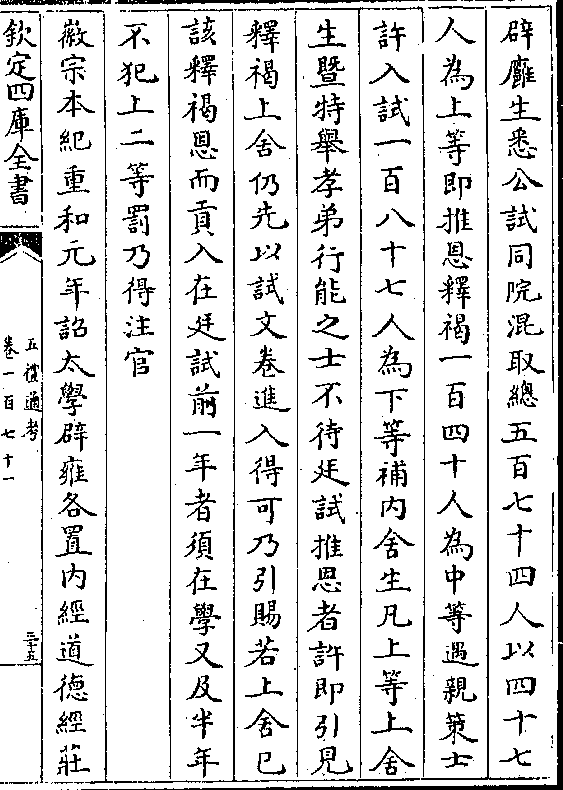 辟廱生悉公試同院混取總五百七十四人以四十七
人為上等即推恩釋褐一百四十人為中等遇親策士
許入試一百八十七人為下等補內舍生凡上等上舍
生暨特舉孝弟行能之士不待廷試推恩者許即引見
釋褐上舍仍先以試文卷進入得可乃引賜若上舍已
該釋褐恩而貢入在廷試前一年者須在學又及半年
不犯上二等罰乃得注官
徽宗本紀重和元年詔太學辟雍各置內經道德經莊
欽定四庫全書
五禮通考
卷一百七十一
三十五